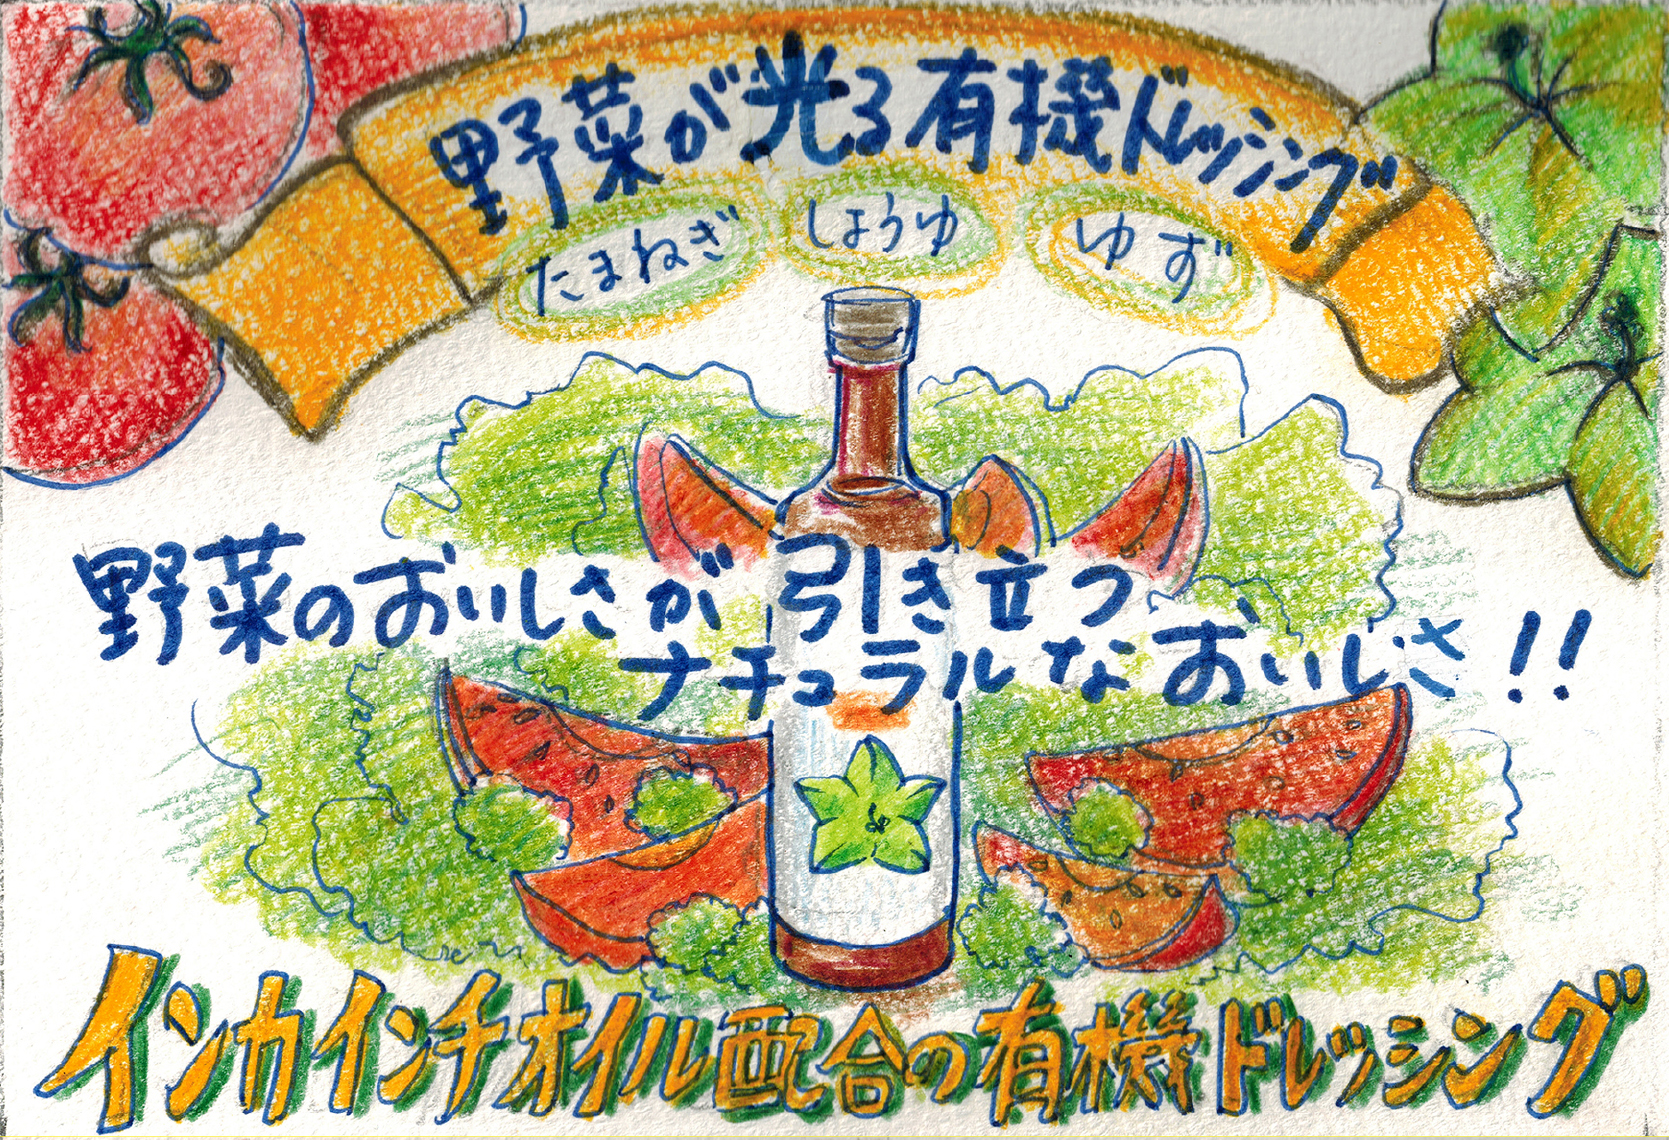 野菜が光る有機ドレッシング
たまねぎ
しょうゆ
ゆず
野菜のおいしさが引き立つ
ナチュラルなおいしさ!!
インカインチオイル配合の有機ドレッシング